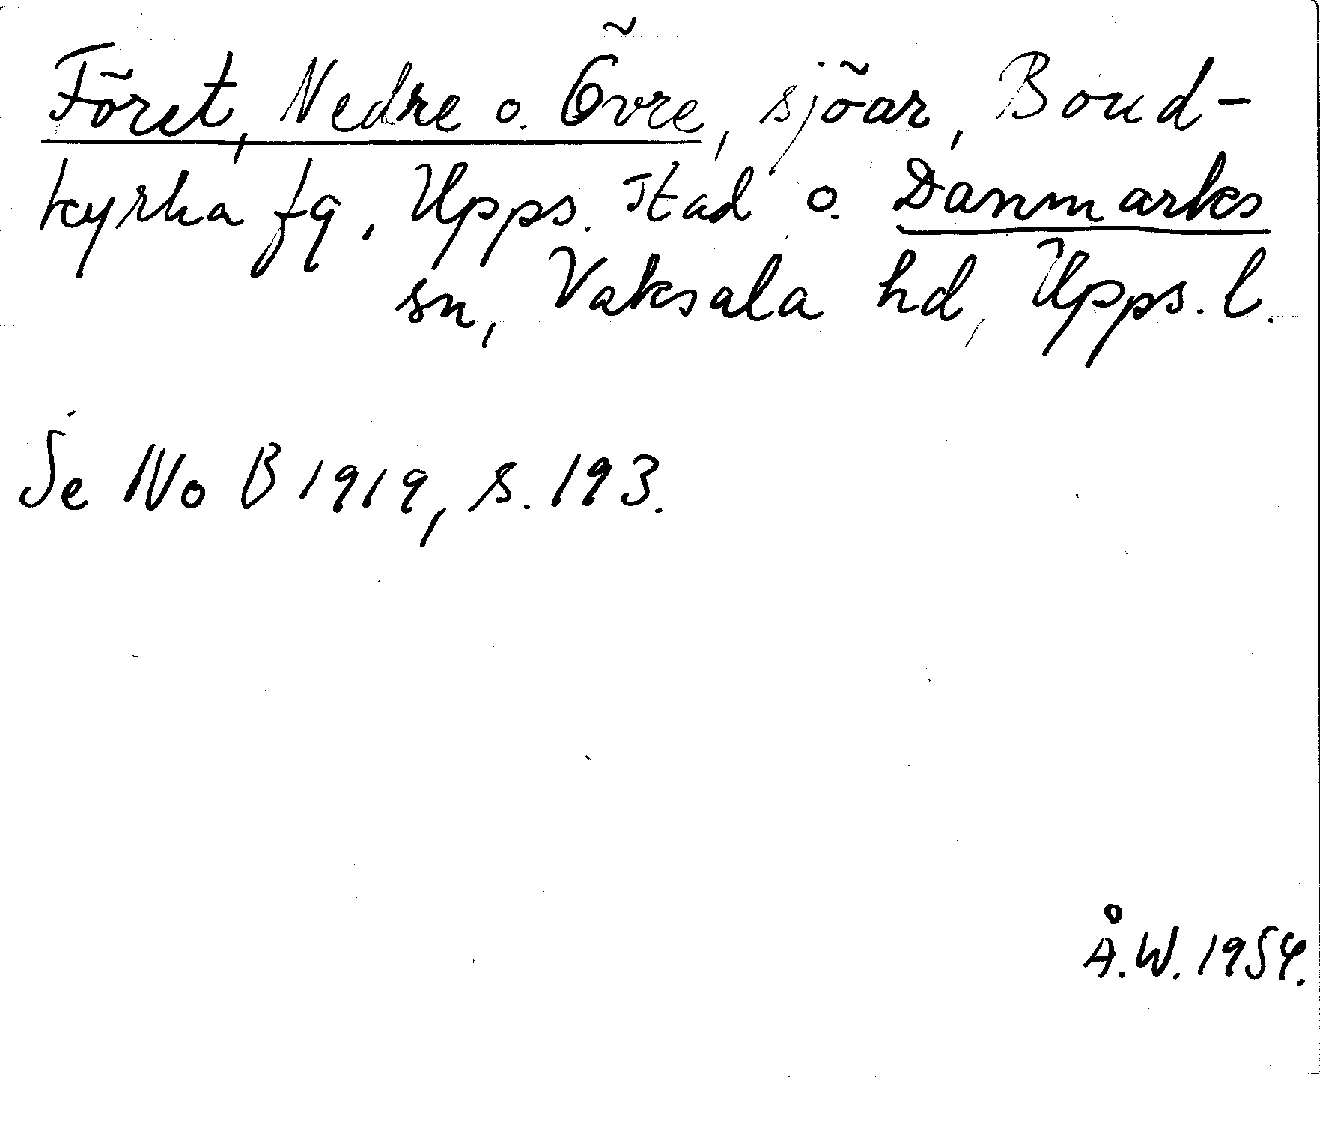 Föret, Nedre o. Övre, sjöar, Bond-
kyrka fg, Upps. stad o. Danmarks
sn, Vaksala hd, Upps. l.
Se No B 1919, s. 193.
Å.W. 1954.